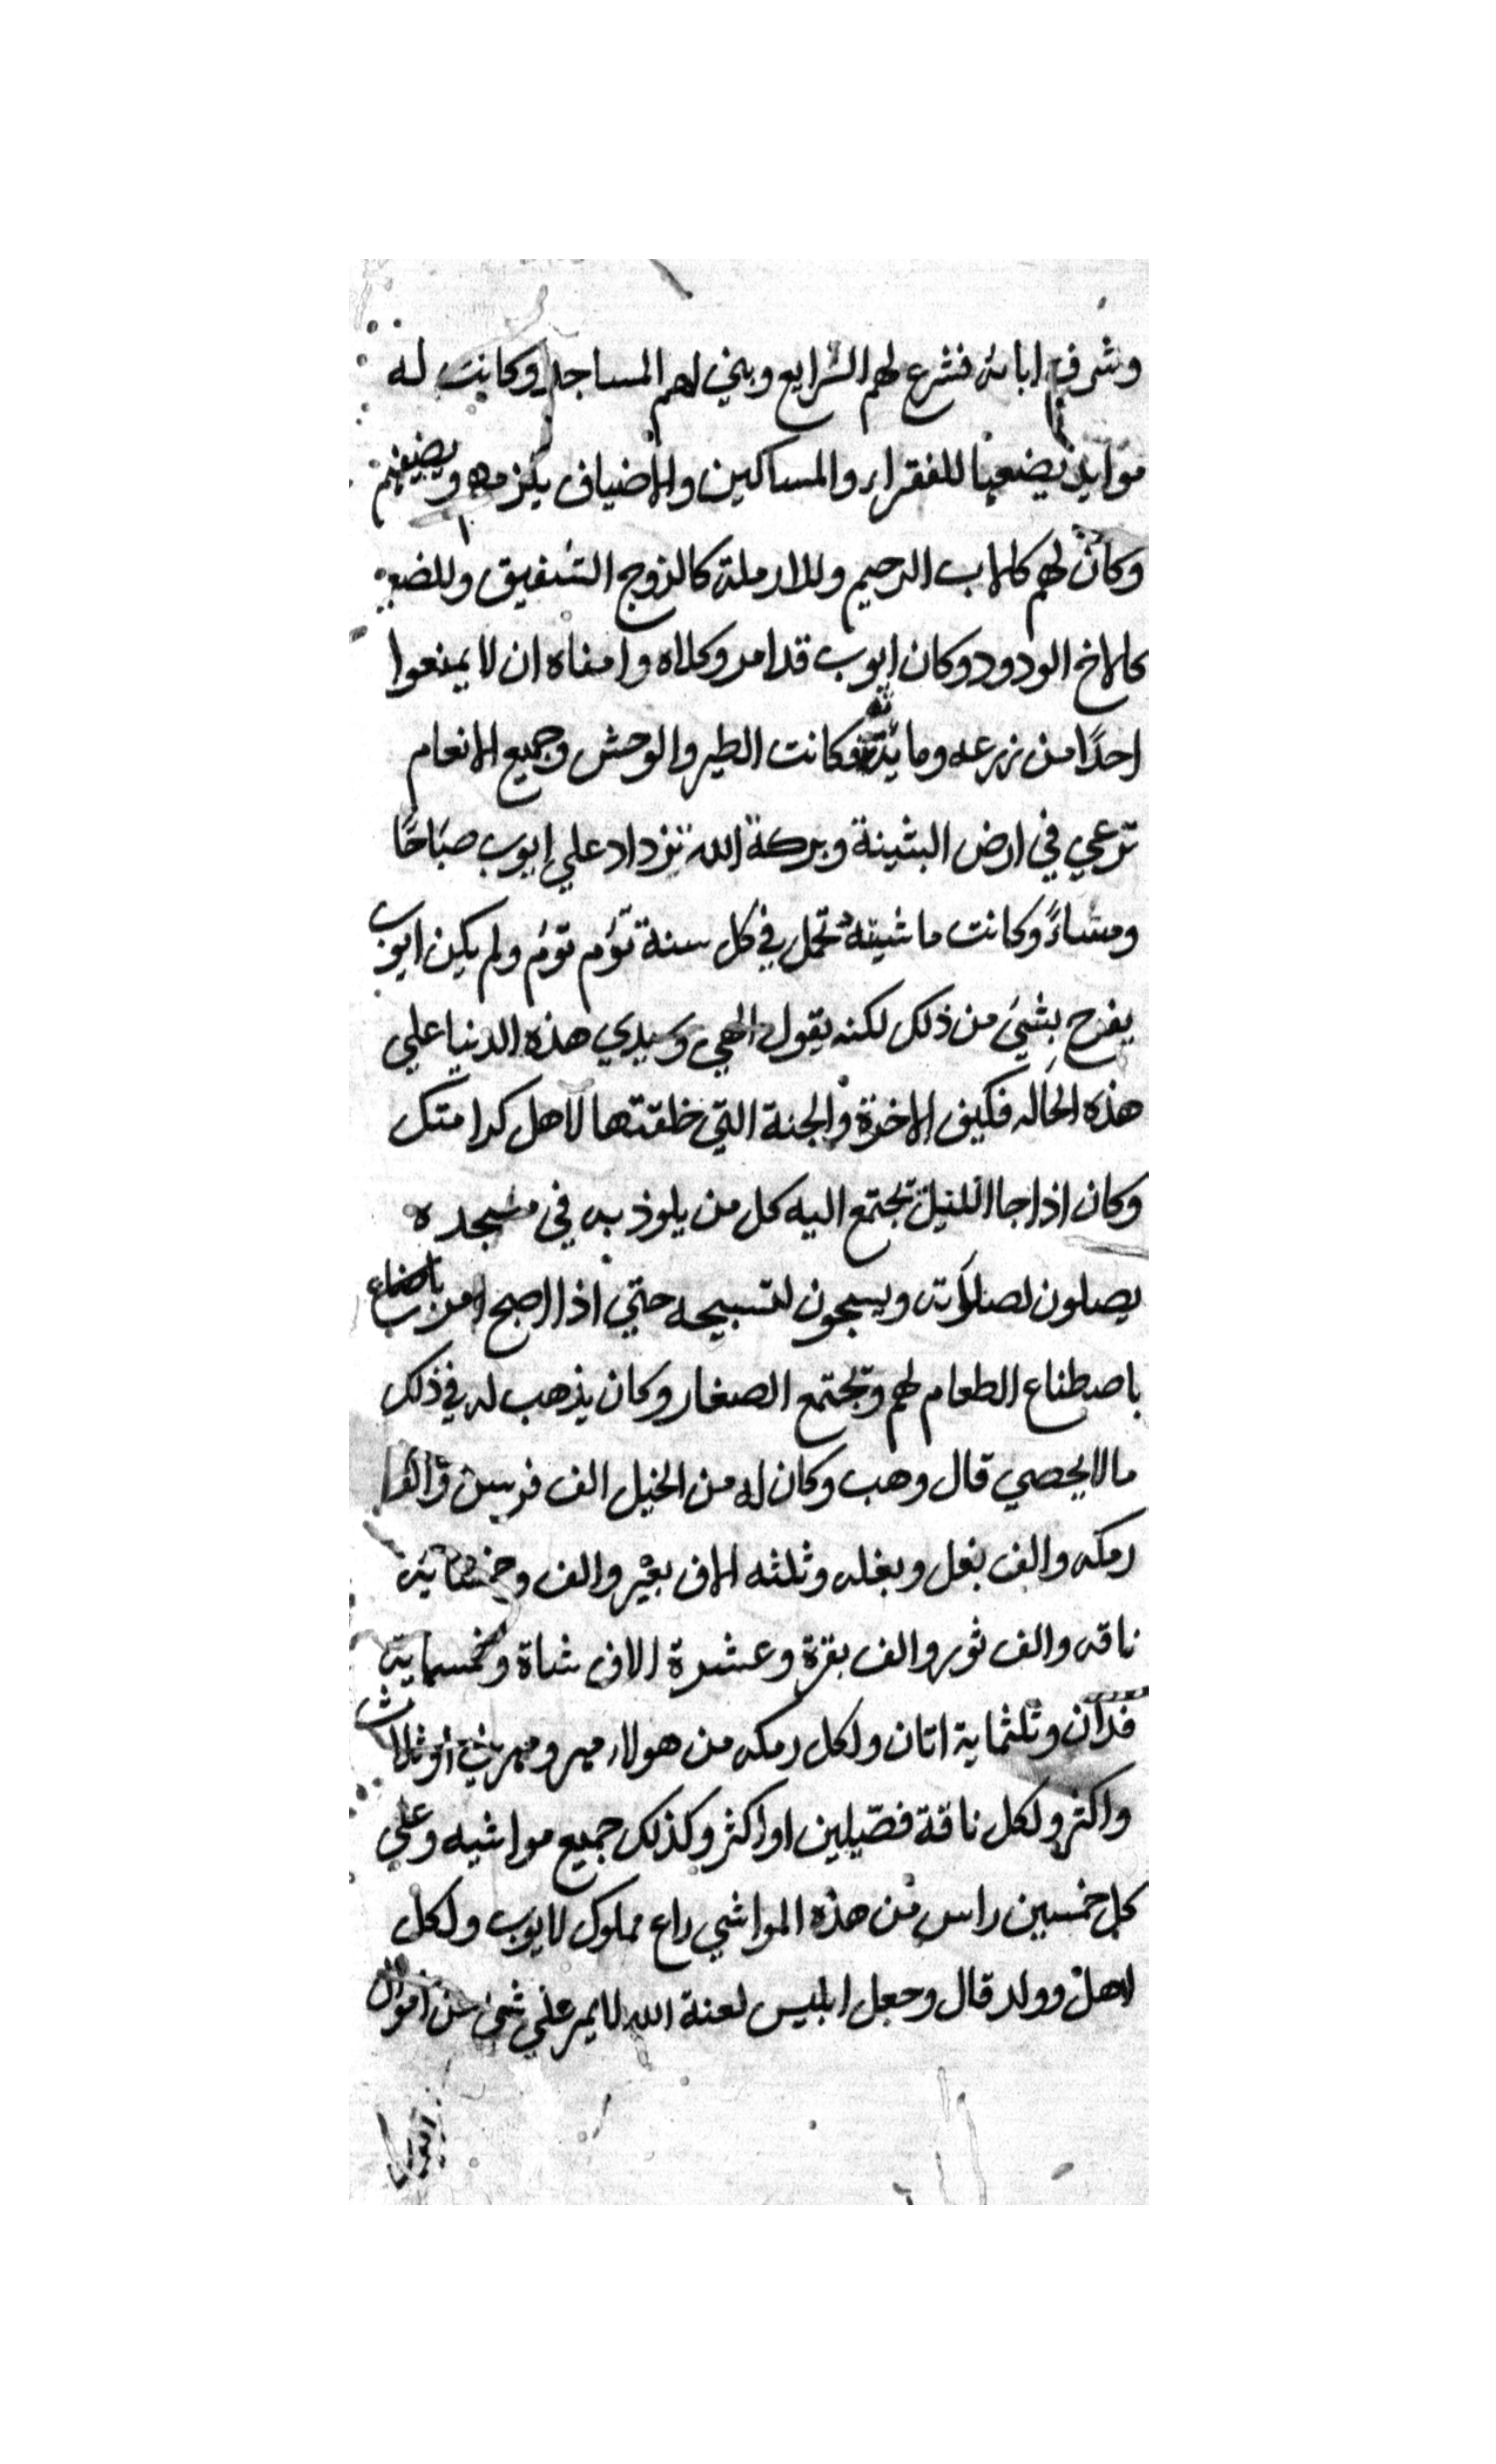 وشرف ابائه فشرع لهم الشرايع وبني لهم المساجد وكانت له
موايد يضعها للفقراء والمساكين والاضياف يكرمهم ويضيفهم
وكان لهم كالاب الرحيم وللارملة كالزوج الشفيق وللضعيف
كالاخ الودود وكان ايوب قد امر وكلاه وامناه ان لا يمنعوا
احدًا من زرعه ومائدته فكانت الطير والوحش وجميع الانعام
ترعي في ارض البثينة وبركة الله تزداد علي ايوب صباحًا
ومساءً وكانت ماشيته تحمل في كل سنة تؤم تؤم ولم يكن ايوب
يفرح بشيئ من ذلك لكنه يقول الهي وسيدي هذه الدنيا علي
هذه الحاله فكيف الاخرة والجنة التي خلقتها لاهل كرامتك
وكان اذا جا الليل تجتمع اليه كل من يلوذ به في مسجده
يصلون لصلاته ويسبحون لتسبيحه حتي اذا اصبح امر باصناع
باصطناع الطعام لهم وتجتمع الصغار وكان يذهب له في ذلك
مالا يحصي قال وهب وكان له من الخيل الف فرس والف
رمكه والف بغل وبغله وثلثه الاف بعير والف وخمسماية
ناقه والف ثور والف بقرة وعشرة الاف شاة وخمسماية
فدان وثلثماية اتان ولكل رمكه من هولاء مهر ومهرين او ثلاث
واكثر ولكل ناقة فصيلين او اكثر وكذلك جميع مواشيه وعلي
كل خمسين راس من هذه المواشي راع مملوك لايوب ولكل
اهل وولد قال وجعل ابليس لعنة الله لا يمر علي شيئ من اموال
ايوب